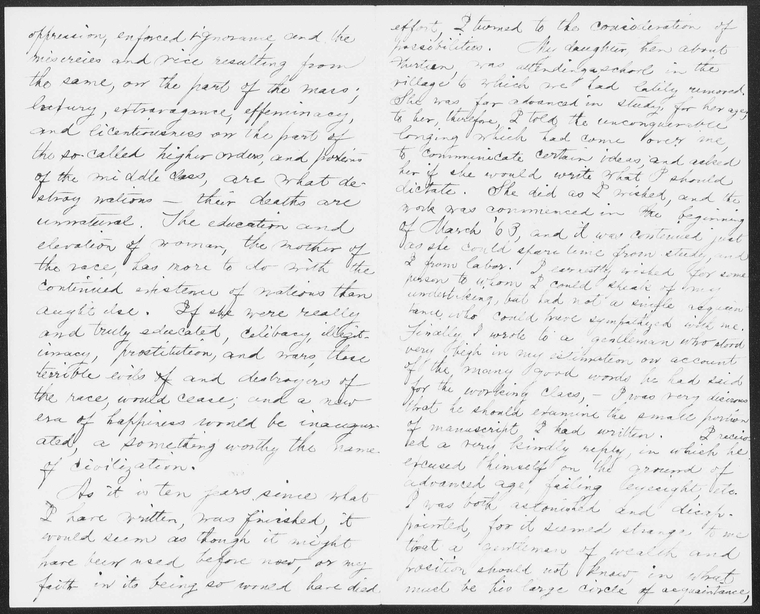 oppression, enforced ignorance, and the
miseries and vice resulting from
the same, on the part of the mass;
luxury, extravagance, effeminacy,
and licentiousness on the part of
the so-called higher orders, and portions
of the middle class, are what de-
stroy nations — their deaths are
unnatural. The education and
elevation of woman, the mother of
the race, has more to do with the
continued existence of nations than
aught else. If she were really
and truly educated, celibacy, illegit-
imacy, prostitution, and wars, those
terrible evils of and destroyers of
the race, would cease; and a new
era of happiness would be inaugur-
ated, a something worthy the name
of civilization.
As it is ten years since what
I have written, was finished, it
would seem as though it might
have been used before now, or my
faith in its being so would have died.
effort, I turned to the consideration of
possibilities. My daughter, then about
thirteen, was attending school in the
village to which we had lately removed.
She was far advanced in study for her age;
to her, therefore, I told the unconquerable
longing which had come over me,
to communicate certain ideas, and asked
her if she would write what I should
dictate. She did as I wished, and the
work was commenced in the beginning
of March '63, and it was continued just
as she could spare time from study, and
I from labor. I earnestly wished for some
person to whom I could speak of my
undertaking, but had not a single acquain
tance who could have sympathized with me.
Finally I wrote to a gentleman who stood
very high in my estimation on account
of the many good words he had said
for the working class, – I was very desirous
that he should examine the small portion
of manuscript I had written. I receiv
ed a very kindly reply, in which he
excused himself on the ground of
advanced age, failing eyesight, etc.
I was both astonished and disap-
pointed, for it seemed strange to me
that a gentleman of wealth and
position should not know, in what
must be his large circle of acquaintance,